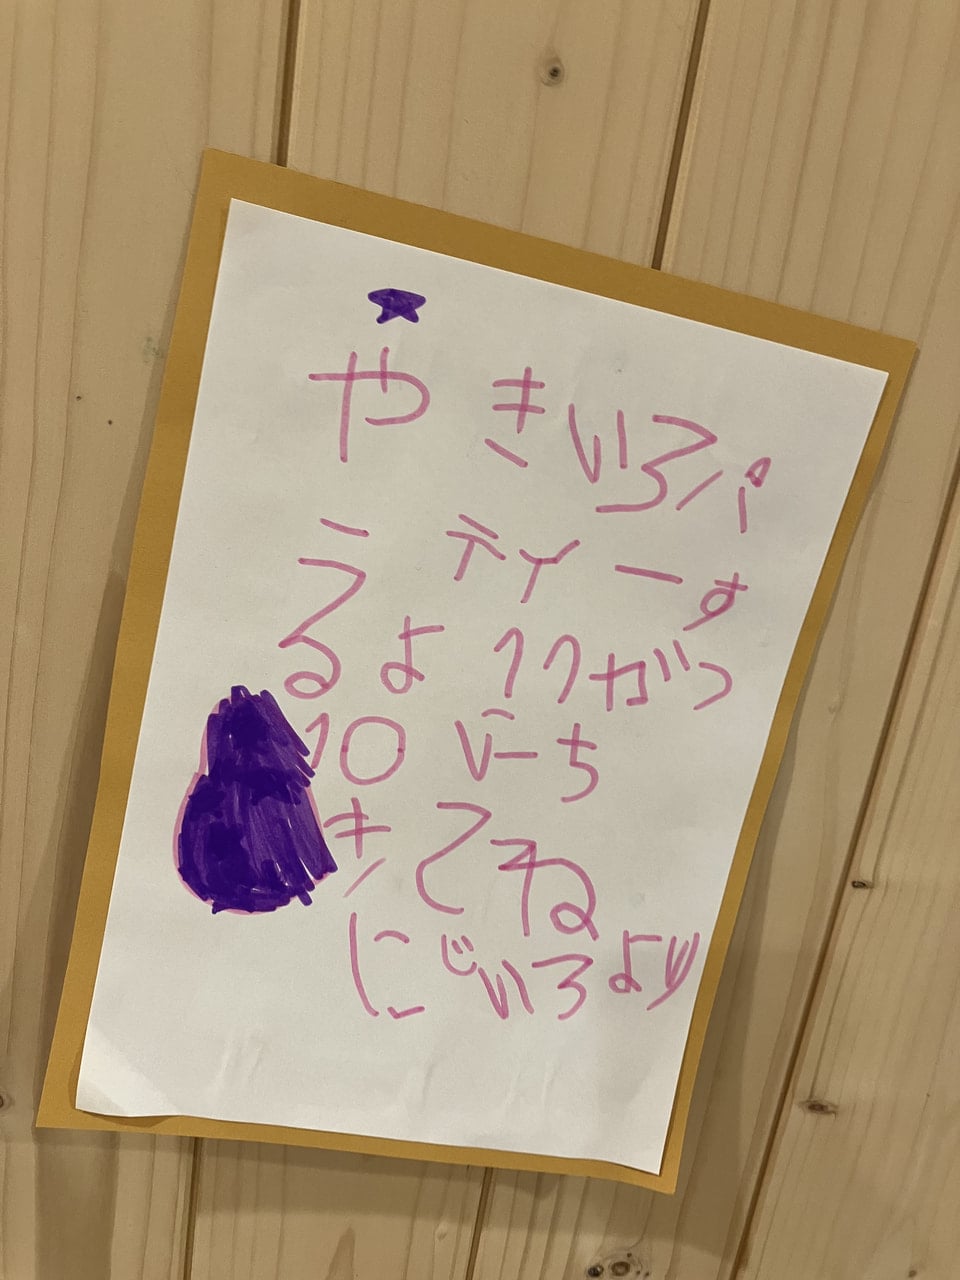 やきいろパ
ーティーす
るよ11がつ
10にち
きてね
にじいろより